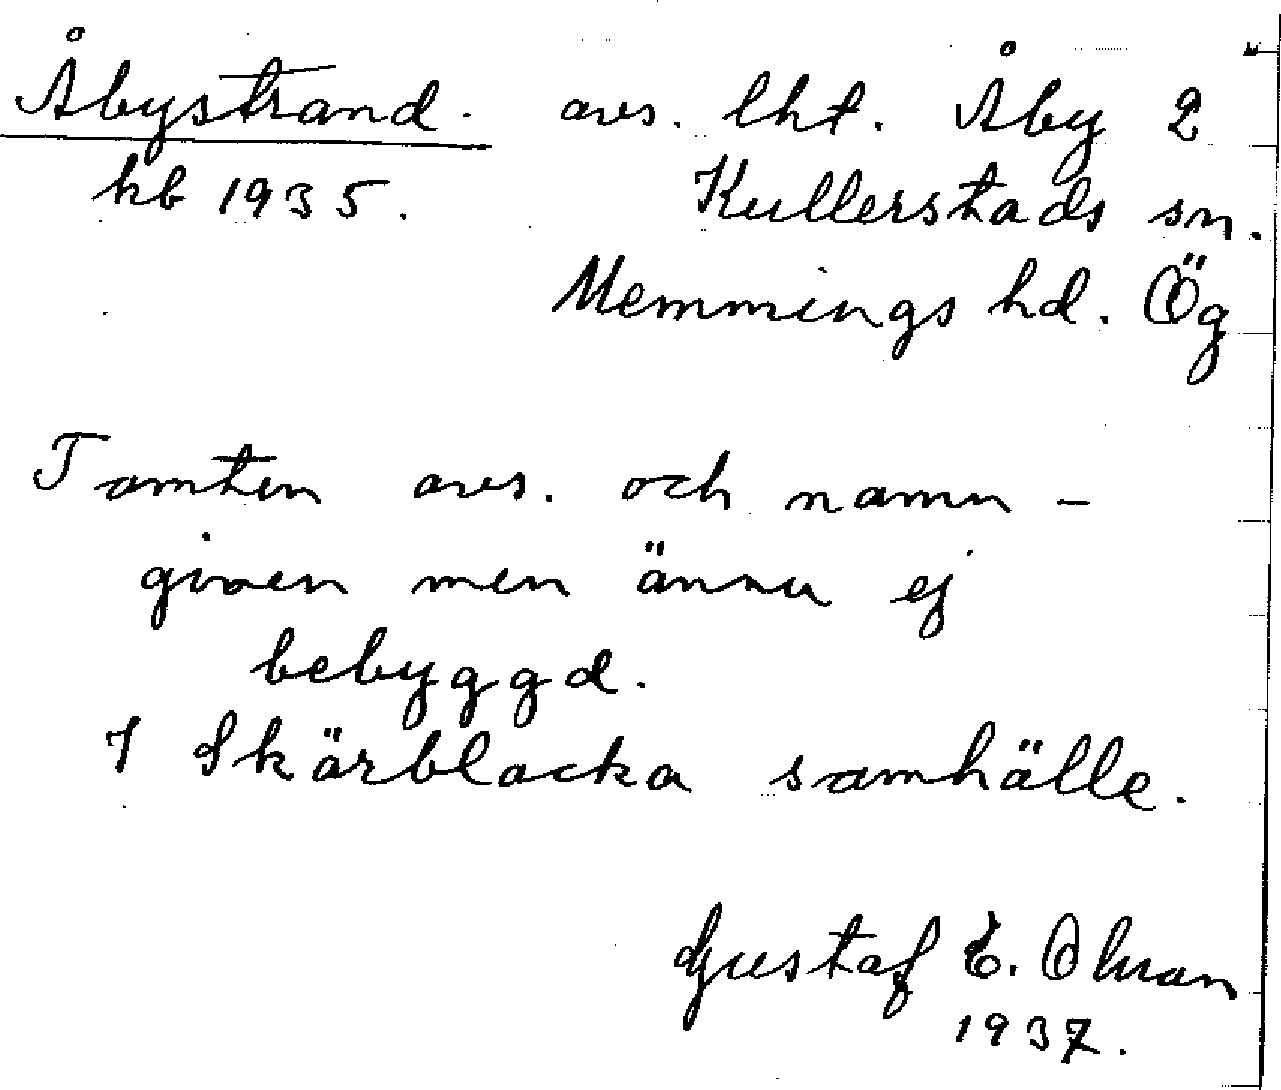 Åbystrand. avs. lht. Åby 2
kb 1935. Kullerstads sn.
Memmings hd. Ög
Tomten avs. och namn-
given men ännu ej
bebyggd.
I Skärblacka samhälle.
Gustaf E.
1937.